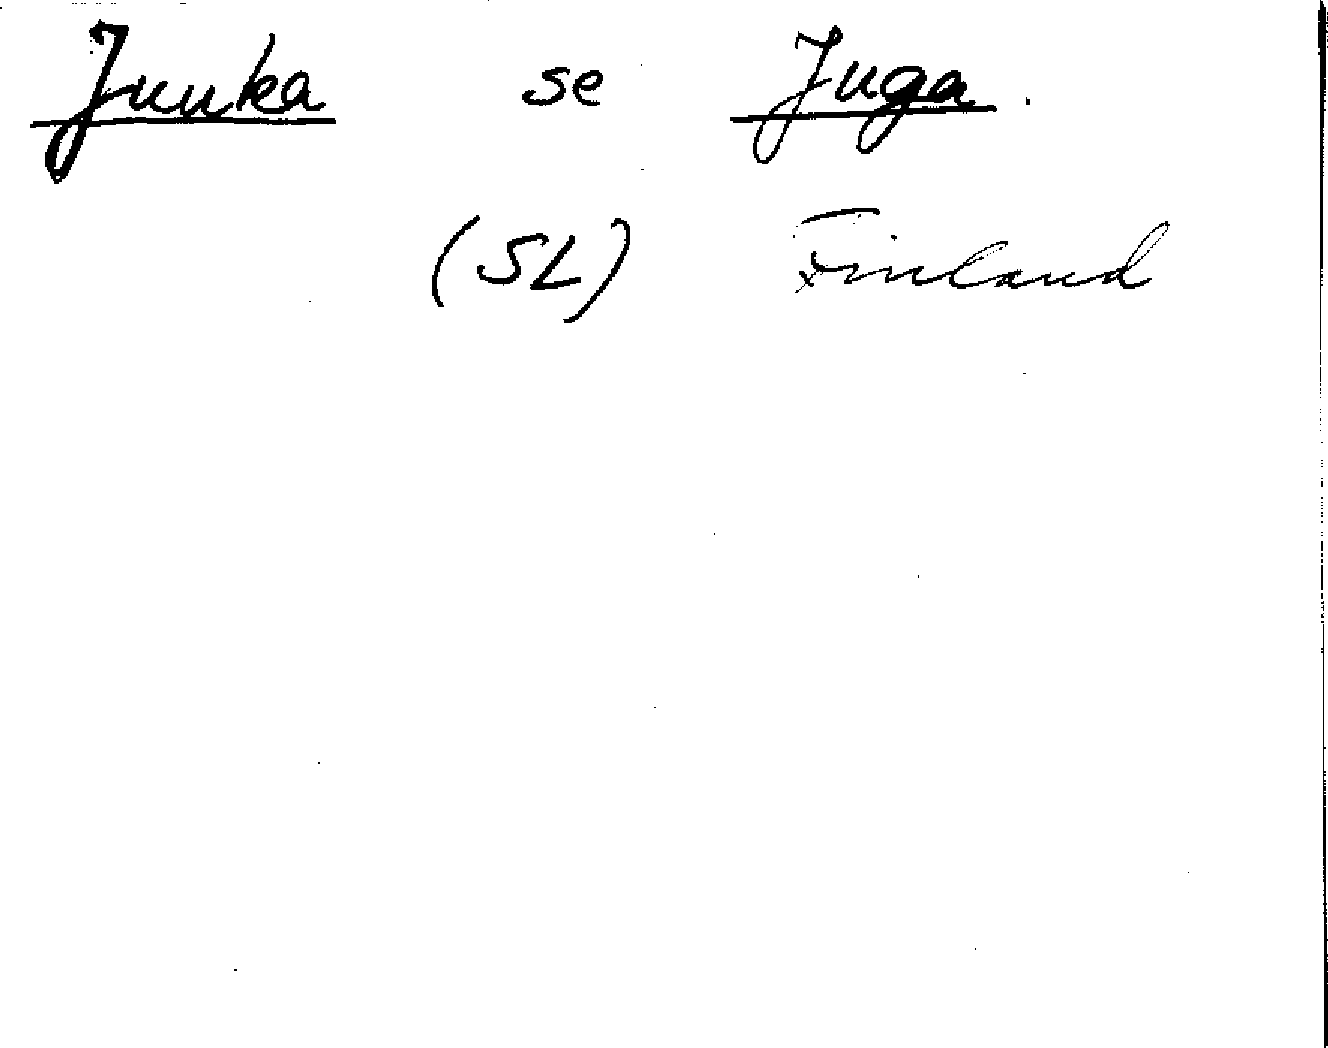 Juuka se Juga.
(SL) Finland